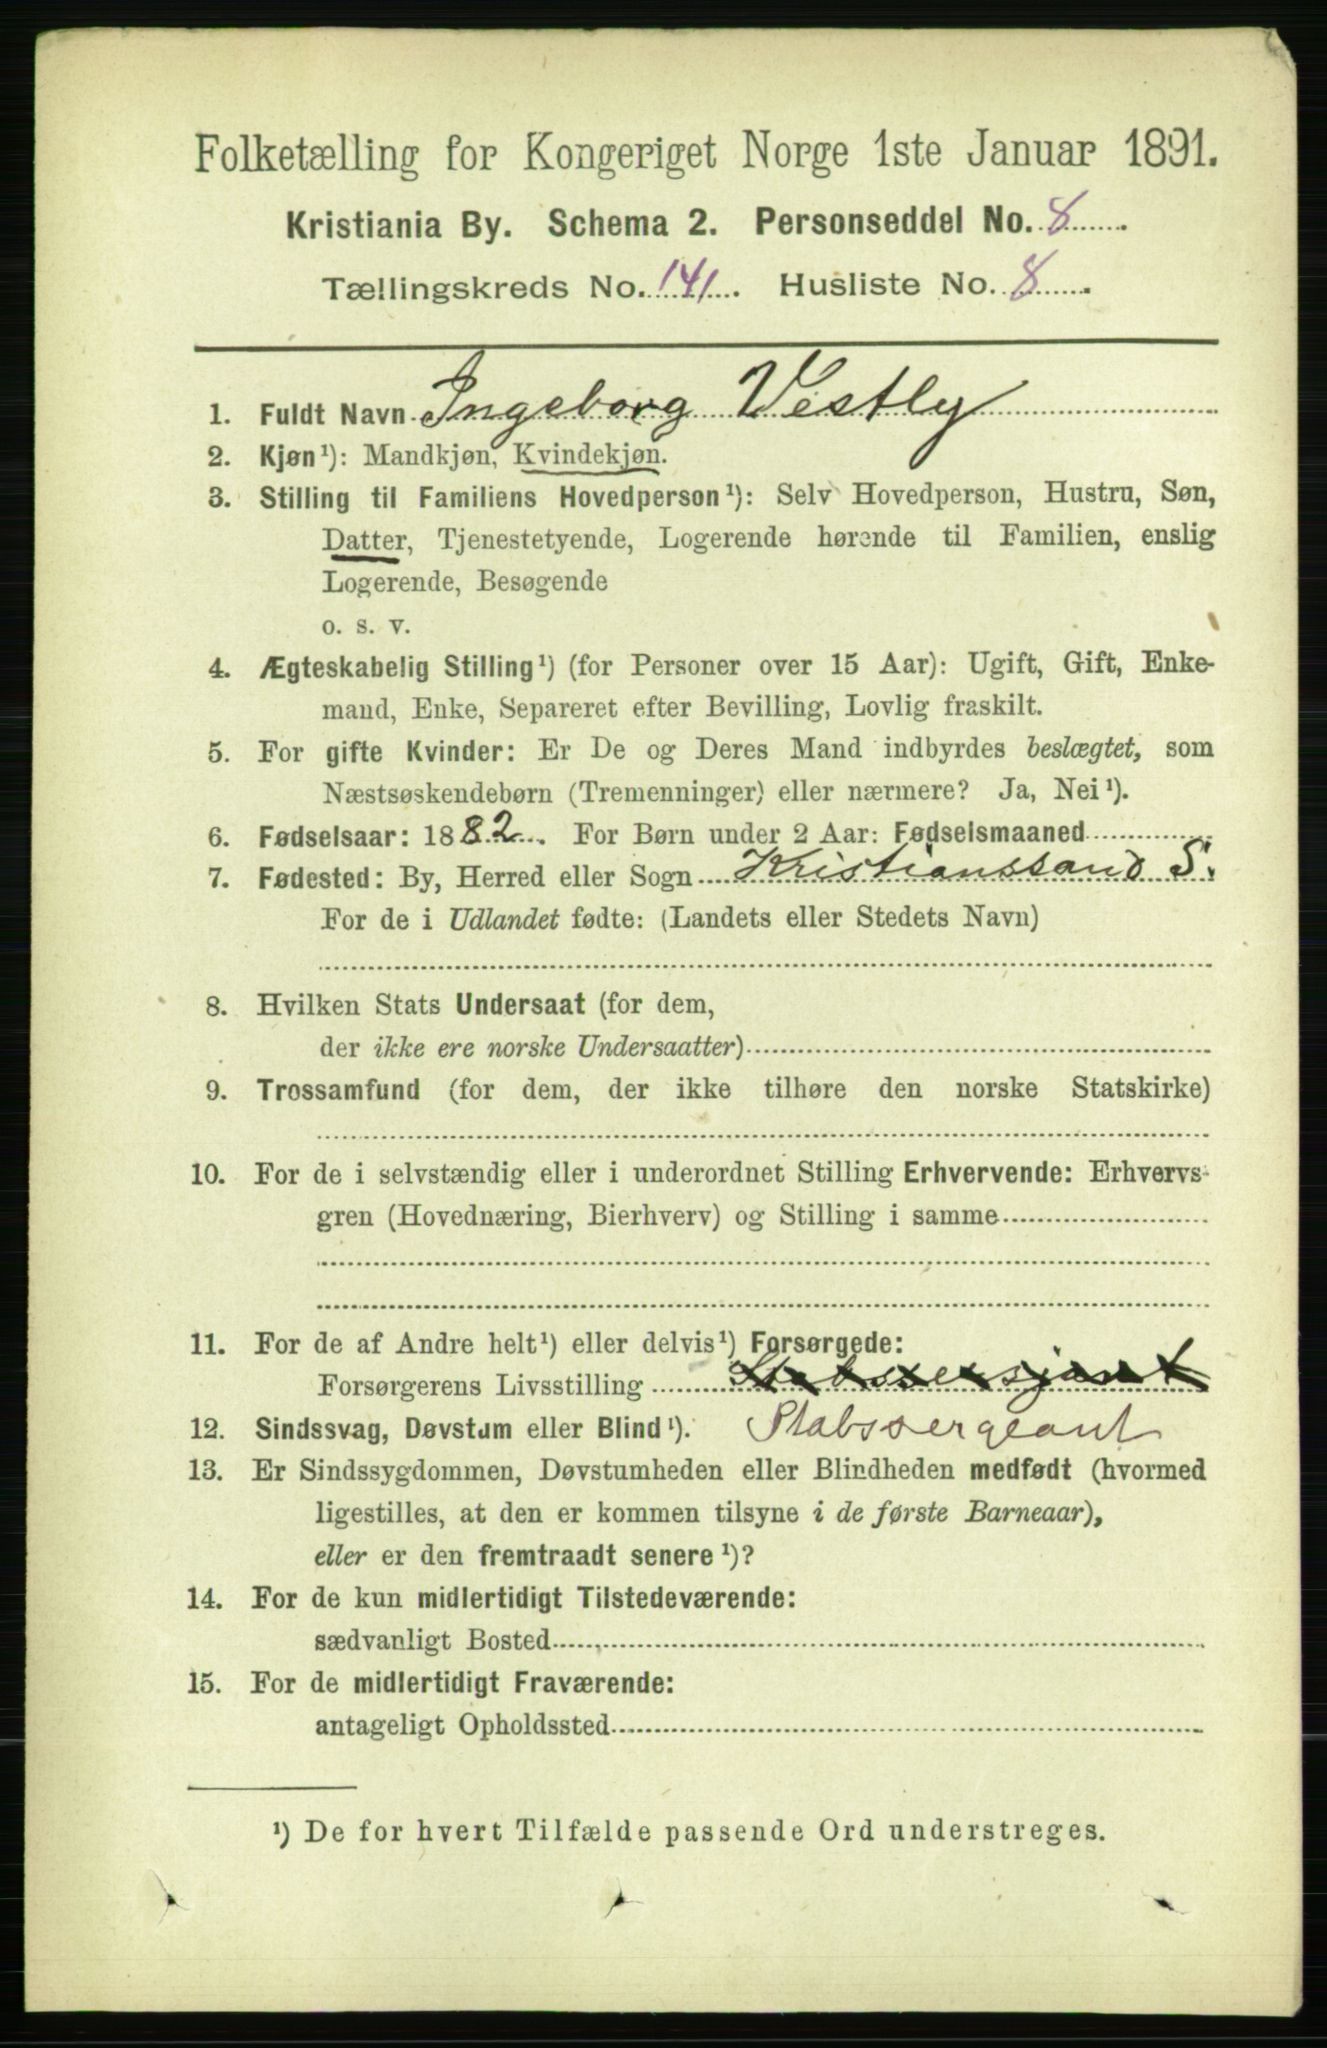 Folketælling for Kongeriget Norge 1ste Januar 1891.
Kristiania By. Schema 2. Personseddel No. 8
Tællingskreds No. 141. Husliste No. 8
1. Fuldt Navn Ingeborg Vestly
2. Kjøn¹): Mandkjøn, Kvindekjøn.
3. Stilling til Familiens Hovedperson¹): Selv Hovedperson, Hustru, Søn,
Datter, Tjenestetyende, Logerende hørende til Familien, enslig
Logerende, Besøgende
o. s. v.
4. Ægteskabelig Stilling¹) (for Personer over 15 Aar): Ugift, Gift, Enke-
mand, Enke, Separeret efter Bevilling, Lovlig fraskilt.
5. For gifte Kvinder: Er De og Deres Mand indbyrdes beslægtet, som
Næstsøskendebørn (Tremenninger) eller nærmere? Ja, Nei¹).
6. Fødselsaar: 1882. For Børn under 2 Aar: Fødselsmaaned
7. Fødested: By, Herred eller Sogn Kristianssand S.
For de i Udlandet fødte: (Landets eller Stedets Navn)
8. Hvilken Stats Undersaat (for dem,
der ikke ere norske Undersaatter)
9. Trossamfund (for dem, der ikke tilhøre den norske Statskirke)
10. For de i selvstændig eller i underordnet Stilling Erhvervende: Erhvervs-
gren (Hovednæring, Bierhverv) og Stilling i samme
11. For de af Andre helt¹) eller delvis¹) Forsørgede:
Forsørgerens Livsstilling Stabssersjant
12. Sindssvag, Døvstum eller Blind¹). Stabssergeant
13. Er Sindssygdommen, Døvstumheden eller Blindheden medfødt (hvormed
ligestilles, at den er kommen tilsyne i de første Barneaar),
eller er den fremtraadt senere¹)?
14. For de kun midlertidigt Tilstedeværende:
sædvanligt Bosted
15. For de midlertidigt Fraværende:
antageligt Opholdssted
¹) De for hvert Tilfælde passende Ord understreges.